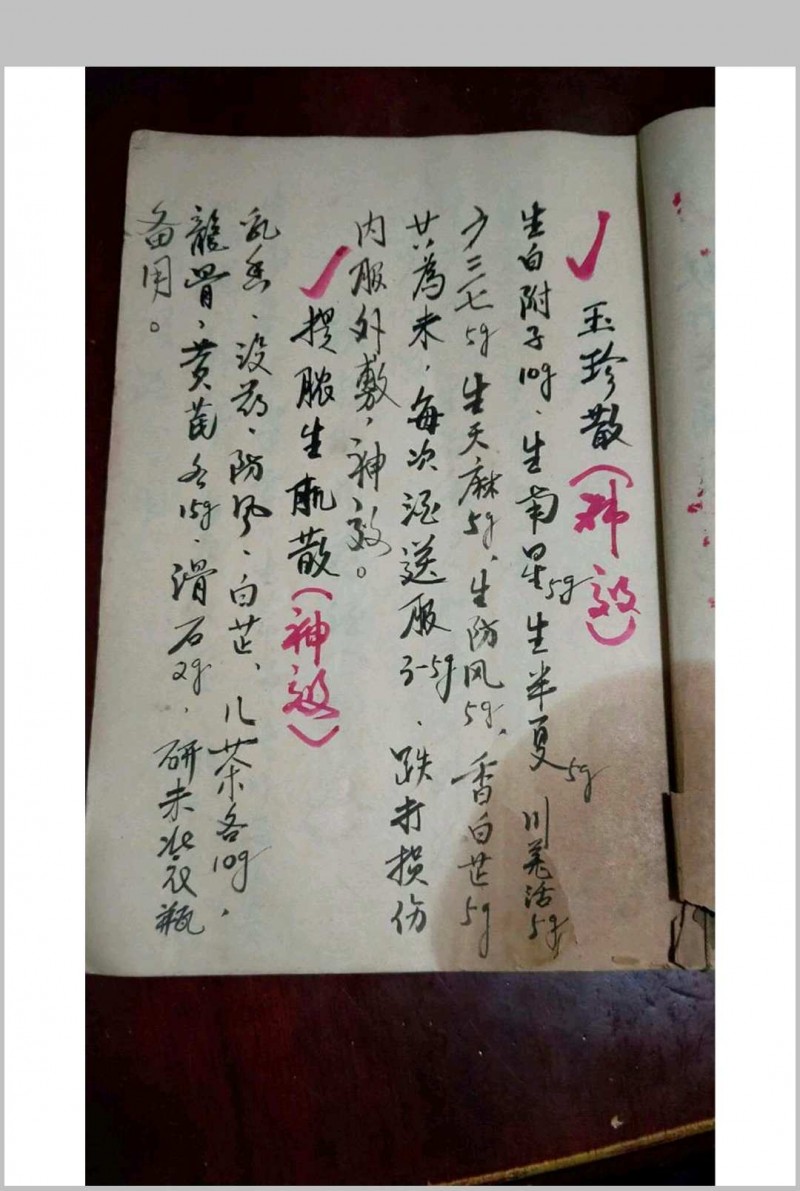 玉珍散(神效)
生白附子10g、生南星5g 生半夏5g 川羌活5g
三七5g 生天麻5g、生防风5g、香白芷5g
共為末，每次酒送服3-5g、跌打损伤
内服外敷，神效。
提脓生肌散(神效)
乳香、没药、防风、白芷、儿茶各10g，
龍骨、黄芪各15g、滑石2g，研末装瓶
备用。